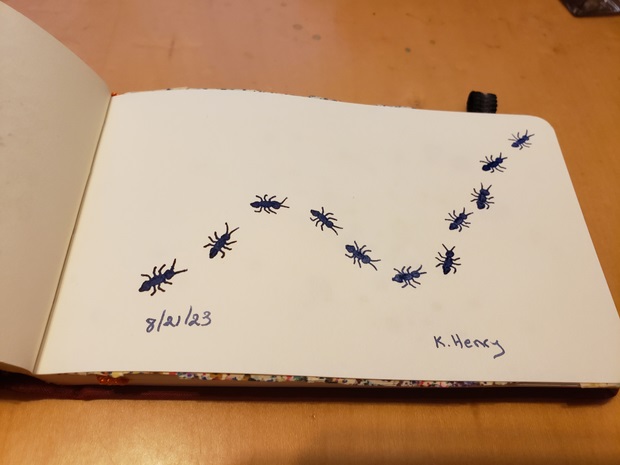 8/21/23
K. Henry